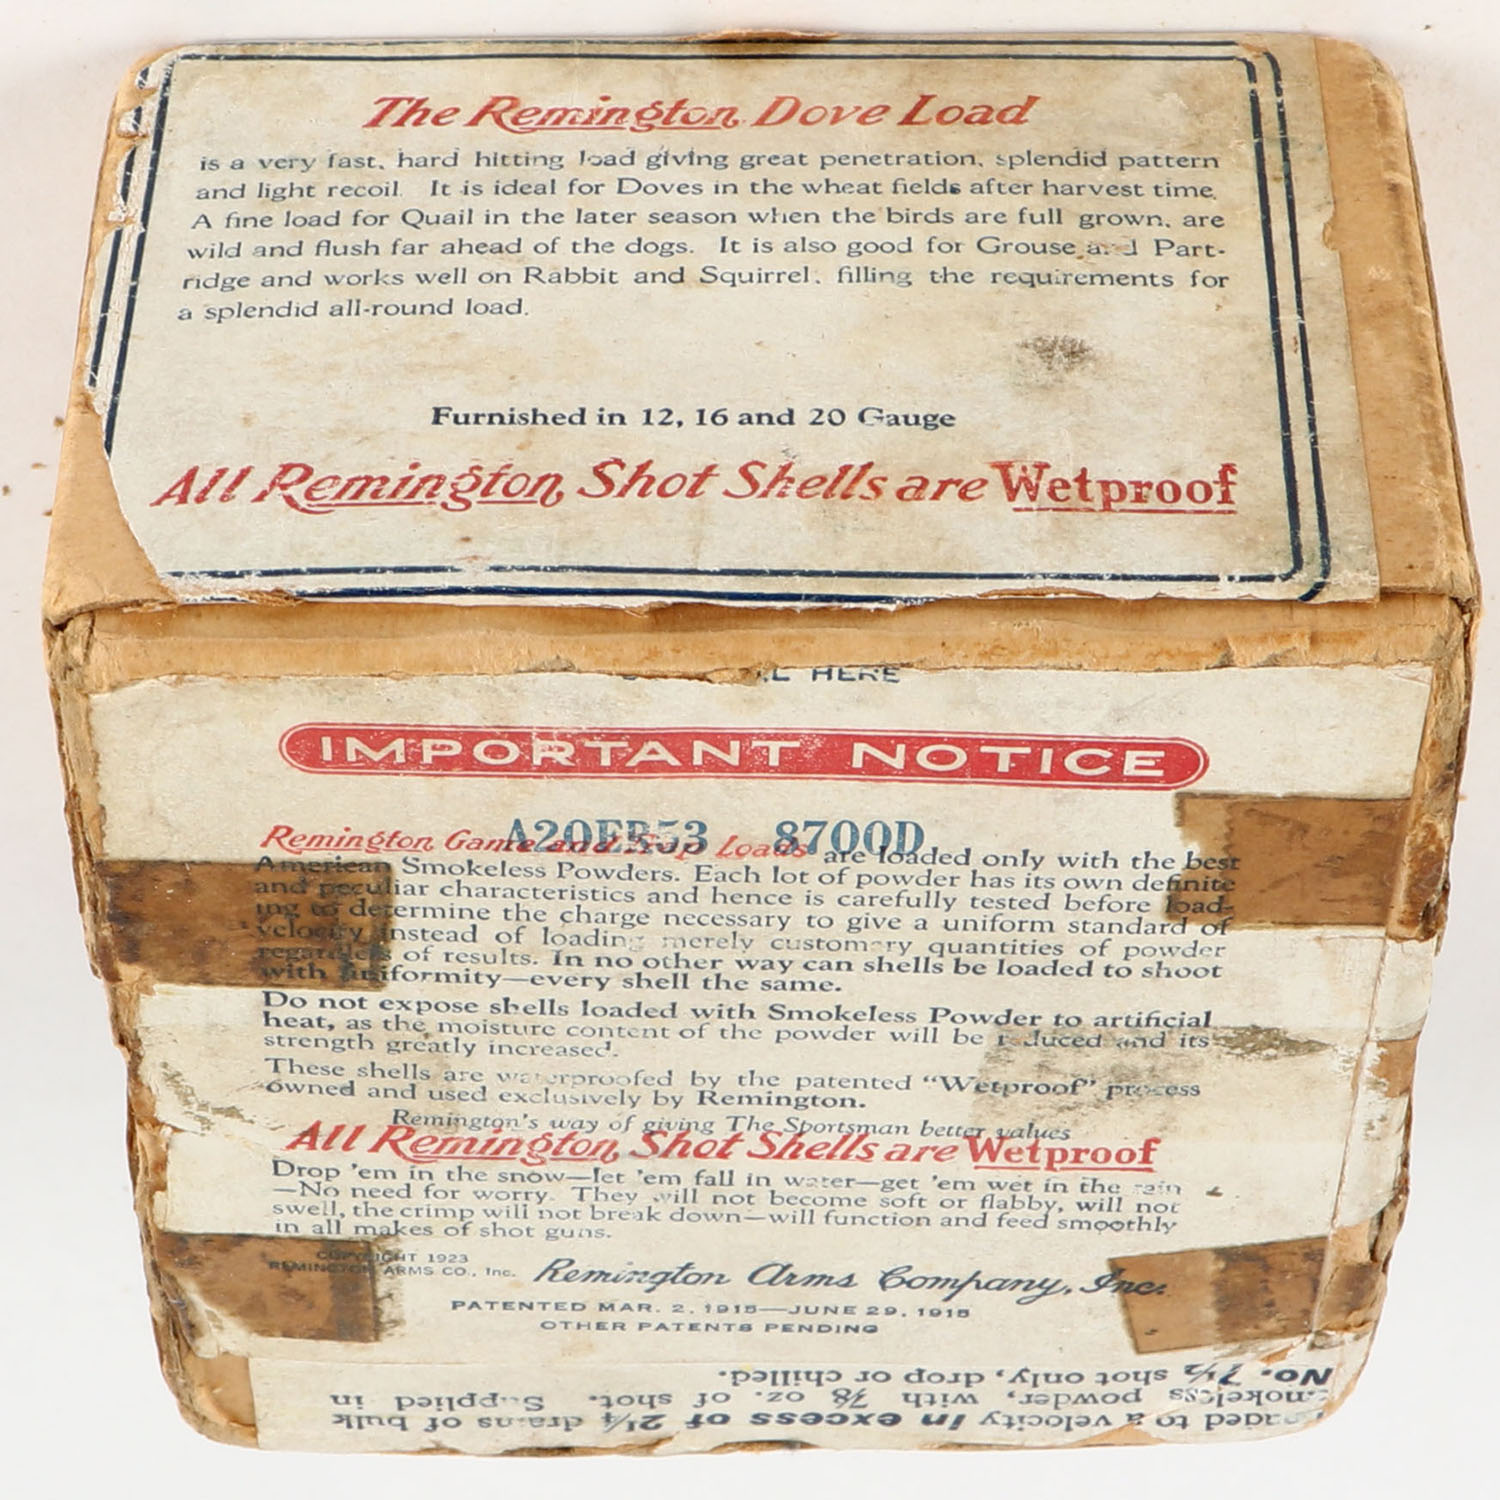 The Remington Dove Load
is a very fast, hard hitting load giving great penetration, splendid pattern
and light recoil. It is ideal for Doves in the wheat fields after harvest time.
A fine load for Quail in the later season when the birds are full grown, are
wild and flush far ahead of the dogs. It is also good for Grouse and Part-
ridge and works well on Rabbit and Squirrel, filling the requirements for
a splendid all-round load.
Furnished in 12, 16 and 20 Gauge
All Remington Shot Shells are Wetproof
HERE
IMPORTANT NOTICE
A20EB53 8700D
Remington Game and Trap Loads are loaded only with the best
American Smokeless Powders. Each lot of powder has its own definite
and peculiar characteristics and hence is carefully tested before load-
ing to determine the charge necessary to give a uniform standard of
velocity instead of loading merely customary quantities of powder
regardless of results. In no other way can shells be loaded to shoot
with uniformity—every shell the same.
Do not expose shells loaded with Smokeless Powder to artificial
heat, as the moisture content of the powder will be reduced and its
strength greatly increased.
These shells are waterproofed by the patented "Wetproof" process
owned and used exclusively by Remington.
Remington's way of giving The Sportsman better values
All Remington Shot Shells are Wetproof
Drop 'em in the snow—let 'em fall in water—get 'em wet in the rain
—No need for worry. They will not become soft or flabby, will not
swell, the crimp will not break down—will function and feed smoothly
in all makes of shot guns.
COPYRIGHT 1923
REMINGTON ARMS CO., Inc.
Remington Arms Company, Inc.
PATENTED MAR. 2, 1915—JUNE 29, 1915
OTHER PATENTS PENDING
Loaded to a velocity in excess of 2¼ drams of bulk
smokeless powder, with ⅞ oz. of shot. Supplied in
No. 7½ shot only, drop or chilled.